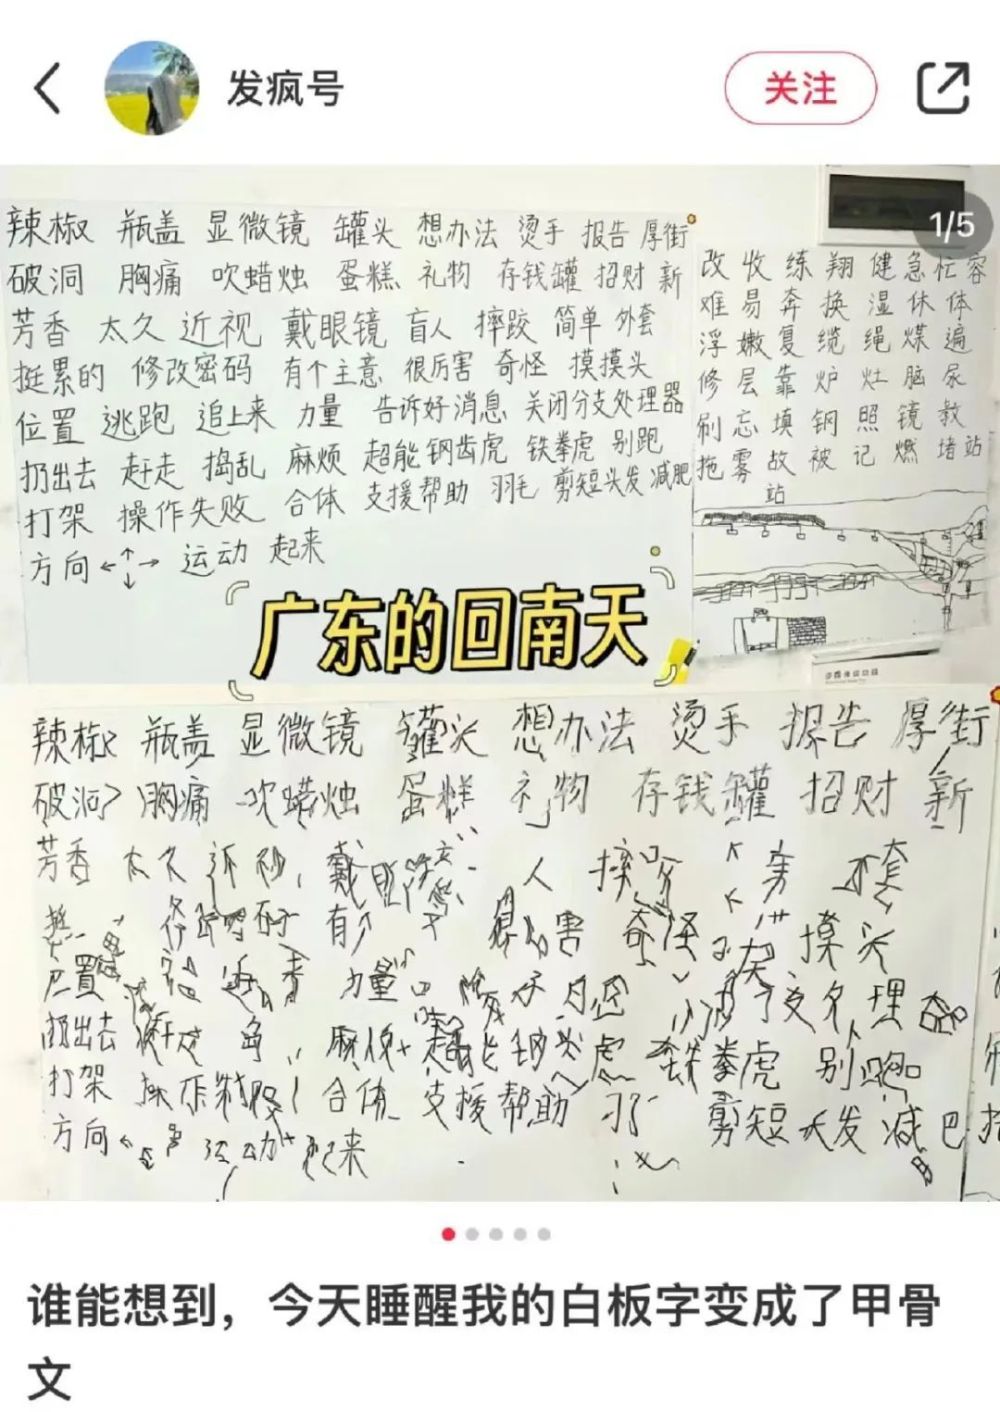 发疯号
关注
1/5
辣椒 瓶盖 显微镜 罐头 想办法 烫手 报告 厚街
破洞 胸痛 吹蜡烛 蛋糕 礼物 存钱罐 招财 新
芳香 太久 近视 戴眼镜 盲人 摔跤 简单 外套
挺累的 修改密码 有个主意 很厉害 奇怪 摸摸头
位置 逃跑 追上来 力量 告诉好消息 关闭分支处理器
扔出去 赶走 捣乱 麻烦 超能钢齿虎 铁拳虎 别跑
打架 操作失败 合体 支援帮助 羽毛 剪短头发 减肥
方向←↑↓→ 运动 起来
改 收 练 翔 健 急 忙 容
难 易 奔 换 湿 休 体
浮 嫩 复 缆 绳 煤 遍
修 层 靠 炉 灶 脑 尿
刷 忘 填 钢 照 镜 教
拖 雾 故 被 记 燃 堵 站
站
广东的回南天
辣椒 瓶盖 显微镜 罐头 想办法 烫手 报告 厚街
破洞 胸痛 吹蜡烛 蛋糕 礼物 存钱罐 招财 新
芳香 太久 戴 人 套
有 害 奇怪 摸头
置 力量 理
扔出去 麻 虎 铁拳虎 别
打架 合体 支援帮助 剪短 发 减
方向 起来
谁能想到，今天睡醒我的白板字变成了甲骨
文